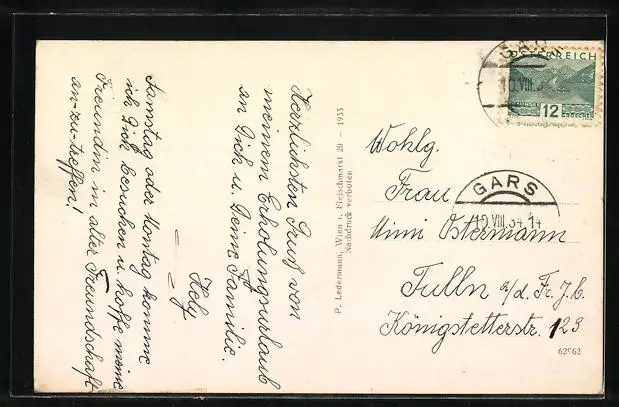 Herzlichsten Gruß von
meinem Erholungsurlaub
an Dich u. Deine Familie.
Hely
Samstag oder Montag komme
ich Dich besuchen u. hoffe meine
Freundin in alter Freundschaft
an-zu-treffen!
P. Ledermann, Wien I. Fleischmarkt 20 – 1933
Nachdruck verboten
GARS
10.VIII.
ÖSTERREICH
12
GROSCHEN
GARS
10.VIII.34-14
Wohlg.
Frau
Mimi Ostermann
Tulln a/d. Fr. J. b.
Königstetterstr. 123
62962